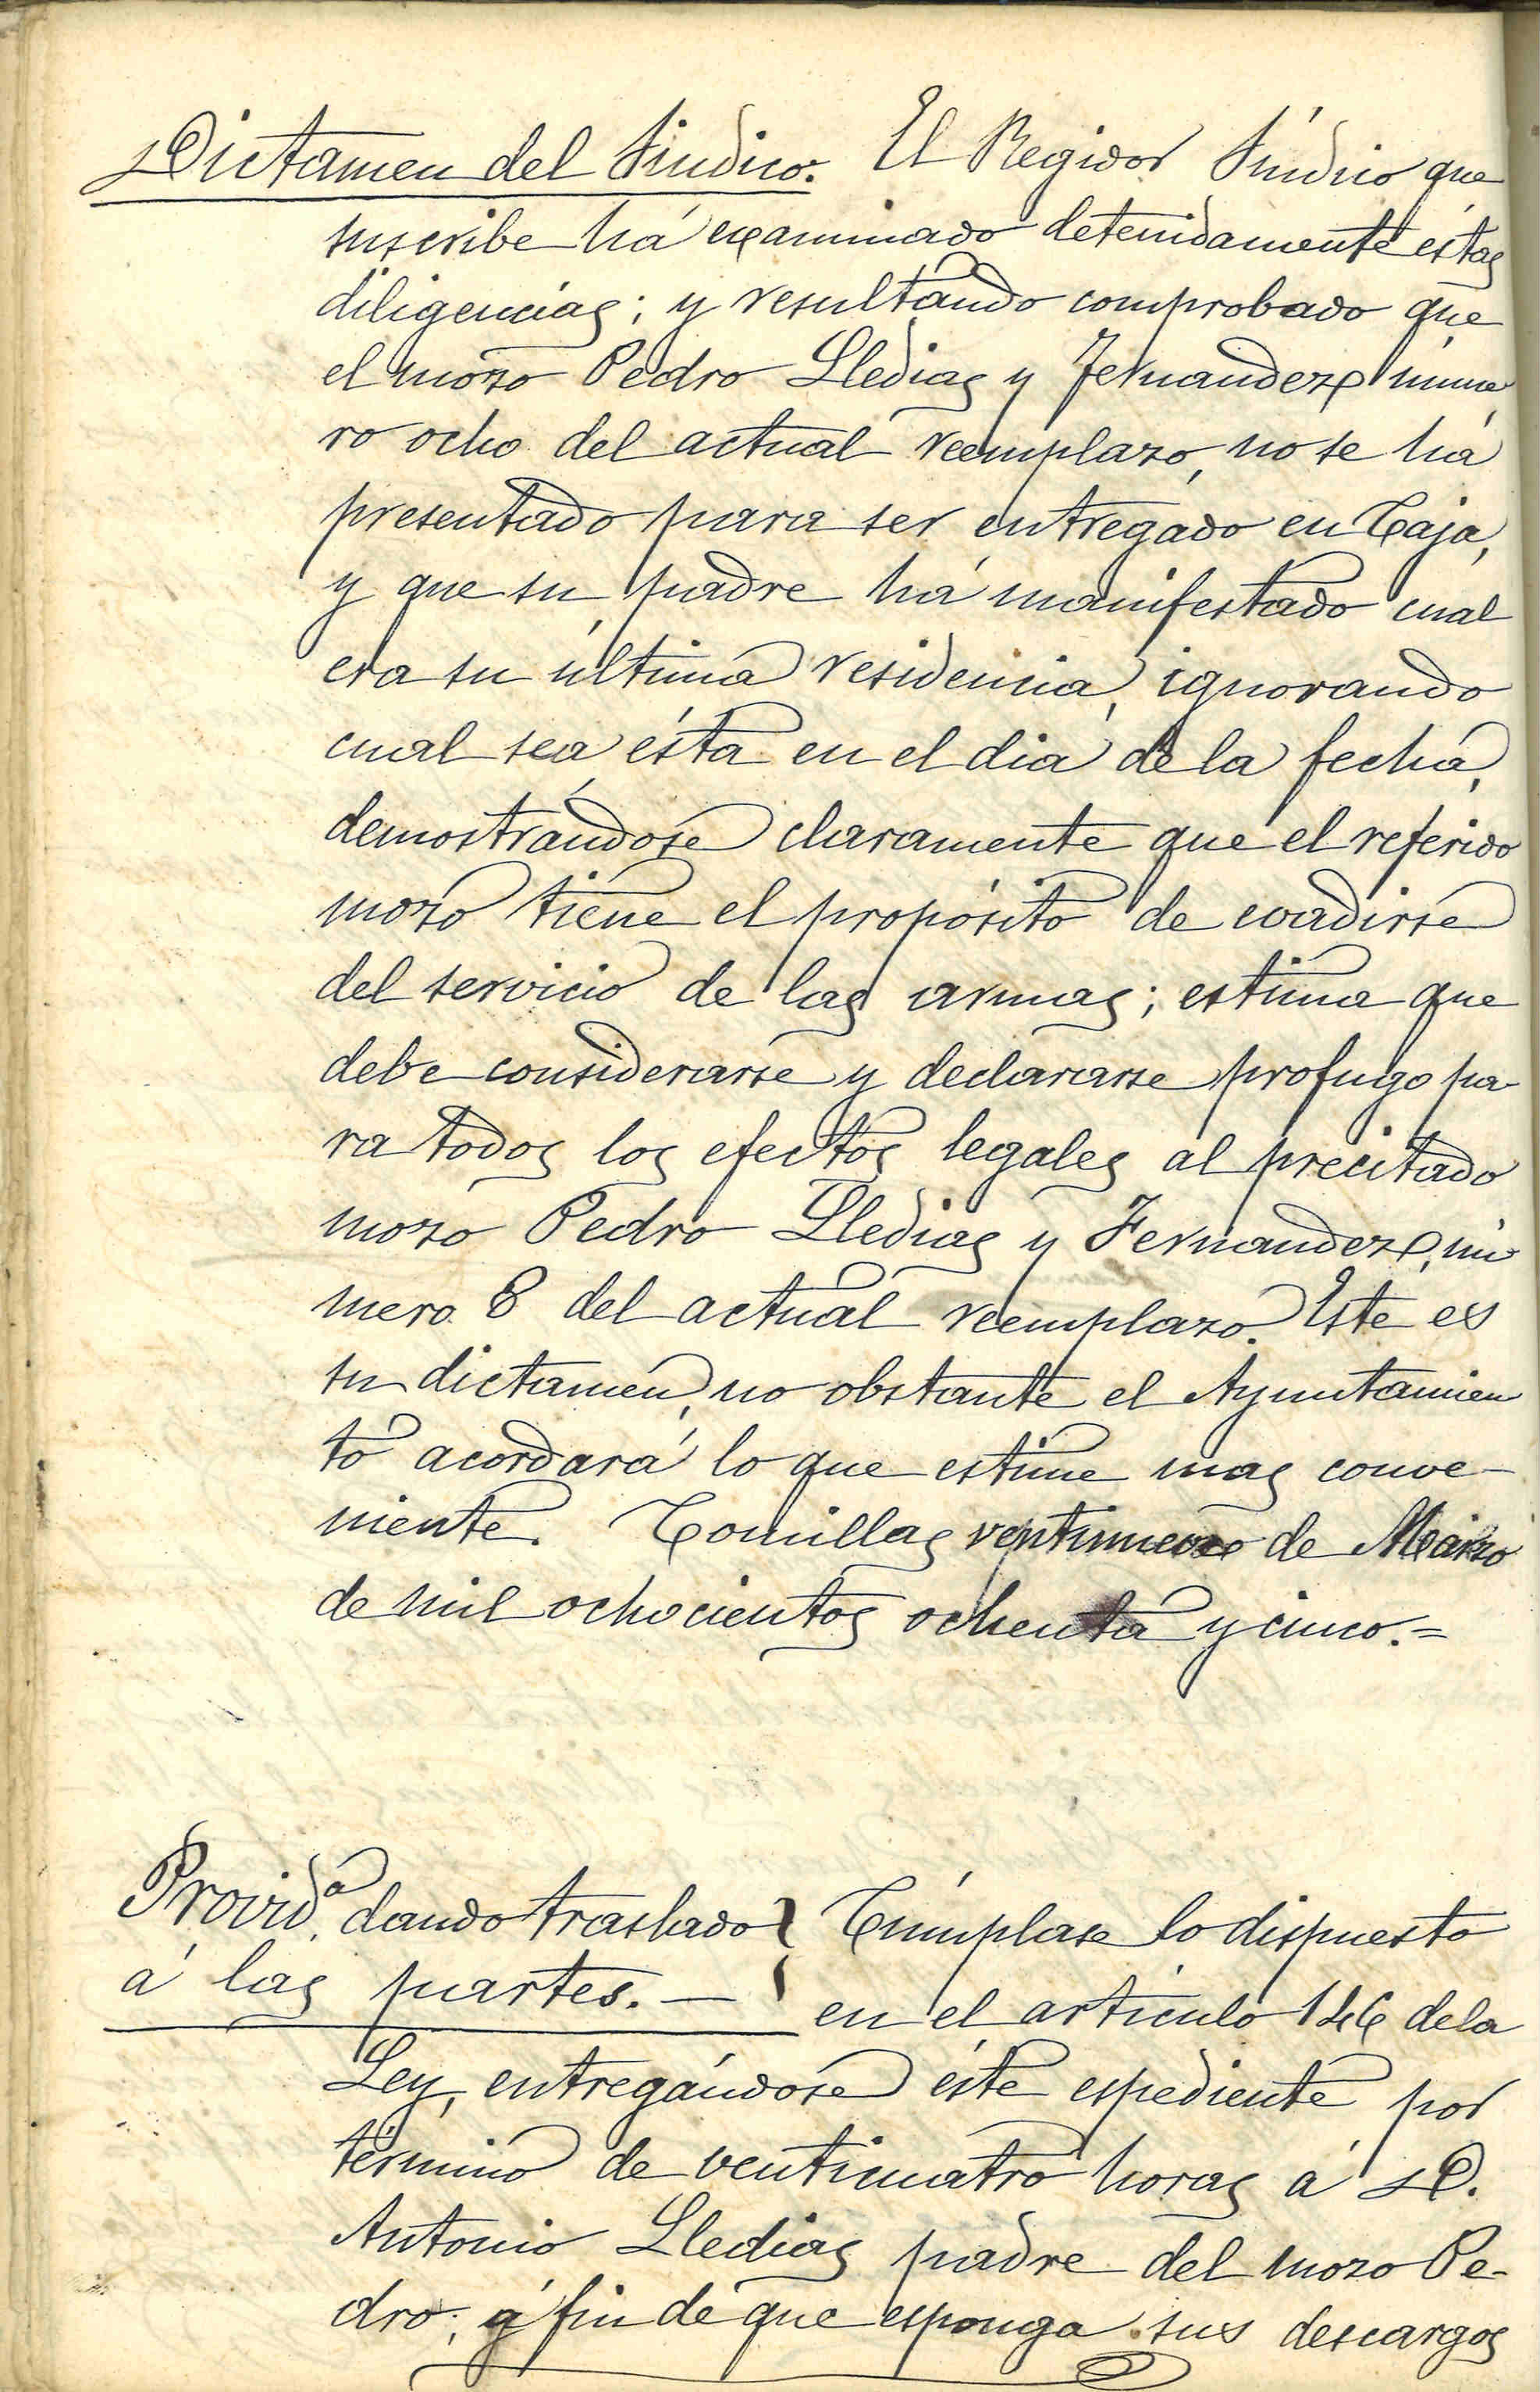 Dictamen del Sindico. El Regidor Síndico que
suscribe há examinado detenidamente éstas
diligencias; y resultando comprobado que
el mozo Pedro Lledias y Fernandez, núme
ro ocho del actual reemplazo, no se há
presentado para ser entregado en Caja,
y que su padre há manifestado cual
era su última residencia, ignorando
cual sea ésta en el dia de la fecha,
demostrándose claramente que el referido
mozo tiene el propósito de evadirse
del servicio de las armas; estima que
debe considerarse y declararse profugo pa-
ra todos los efectos legales al precitado
mozo Pedro Lledias y Fernandez, nú
mero 8 del actual reemplazo. Este es
su dictamen, no obstante el Ayuntamien
to acordará lo que estime mas conve-
niente. Comillas ventinueve de Marzo
de mil ochocientos ochenta y cinco.=
Provid.ª dando traslado } Cúmplase lo dispuesto
á las partes. — en el artículo 146 de la
Ley, entregándose éste espediente por
término de venticuatro horas á D.
Antonio Lledias padre del mozo Pe-
dro, á fin de que esponga sus descargos